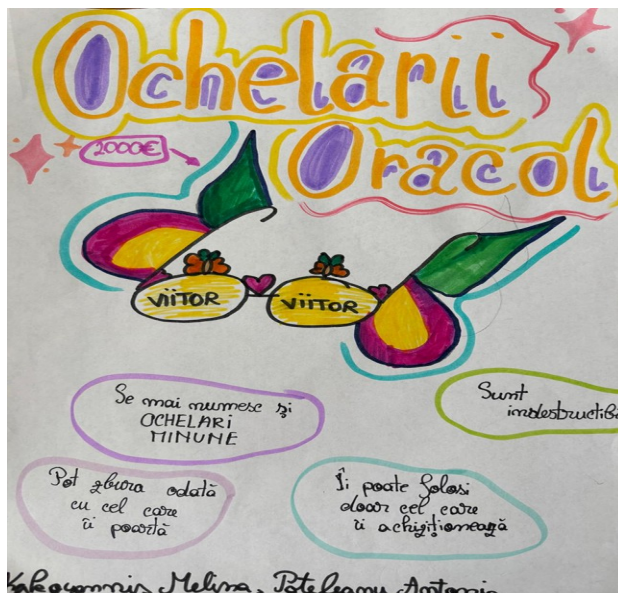 Ochelarii
Oracol
2000€
VIITOR
VIITOR
Se mai numesc și
OCHELARI
MINUNE
Sunt
Pot zbura odată
cu cel care
îi poartă
Îi poate folosi
doar cel care
îi achiziționează
Melina, Antonia